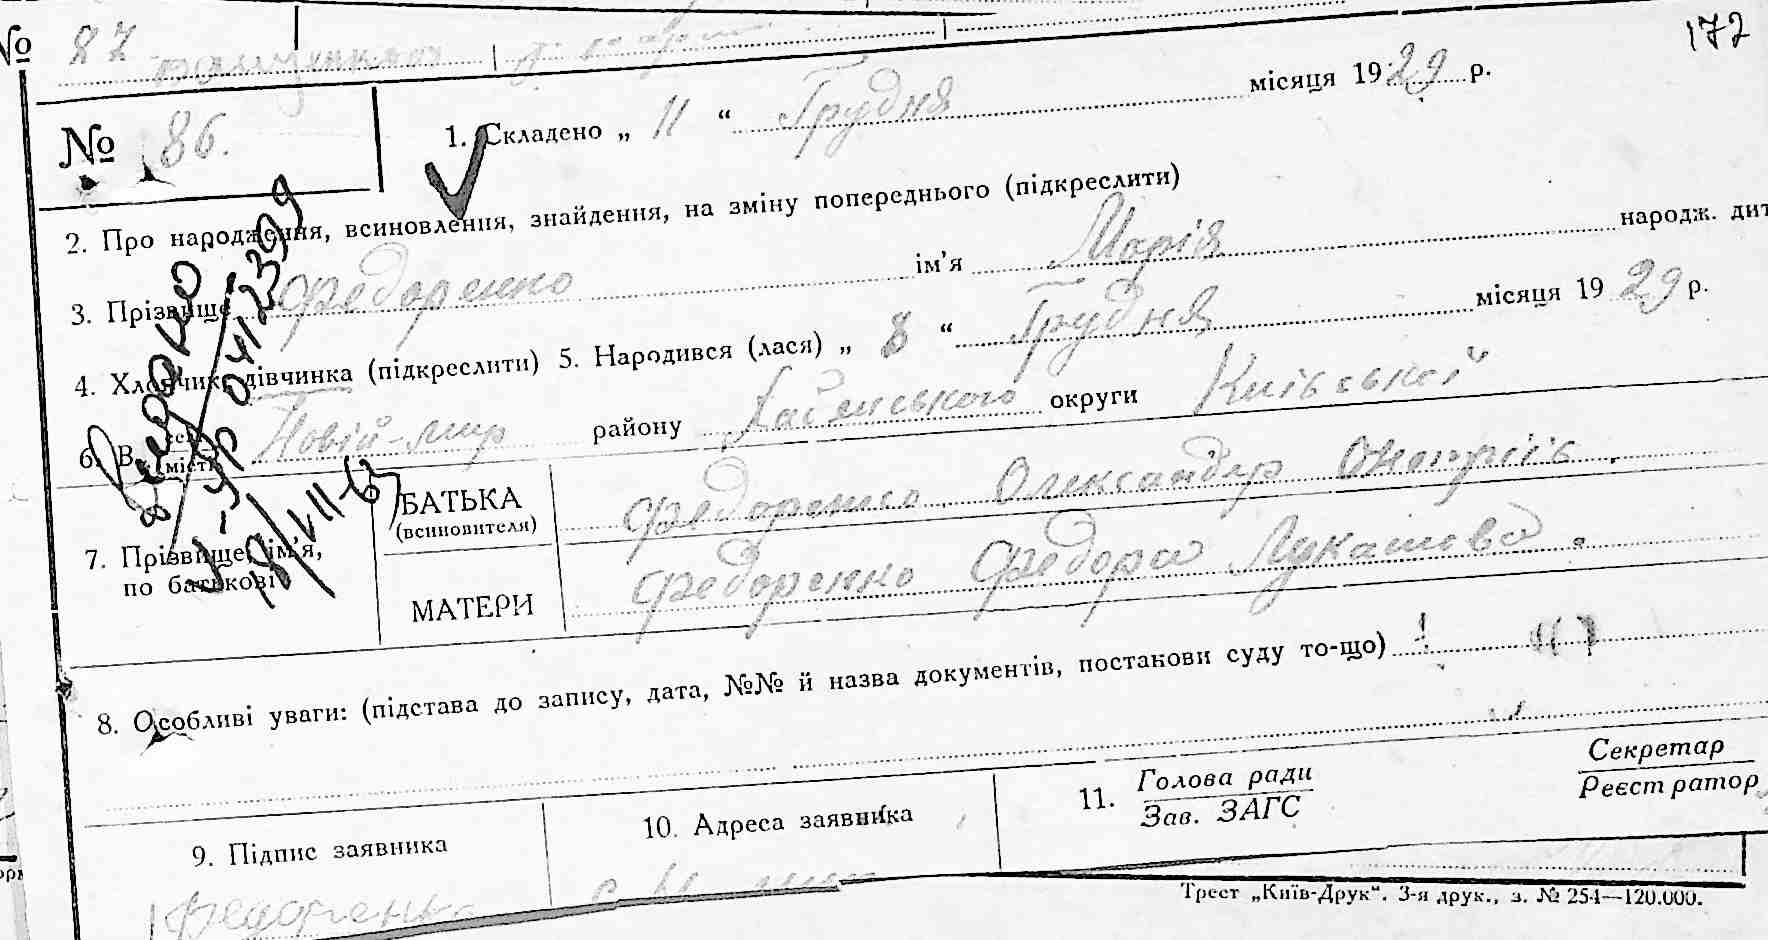 № 87
172
№ 86.
1. Складено „ 11 “ Грудня місяця 1929 р.
2. Про народження, всиновлення, знайдення, на зміну попереднього (підкреслити)
3. Прізвище Федоренко ім’я Марія народж. дит
4. Хлопчик, дівчинка (підкреслити) 5. Народився (лася) „ 8 “ Грудня місяця 1929 р.
6. В селі місті Новій-мир району округи Київської
7. Прізвище, ім’я, по батькові
БАТЬКА (всиновителя) Федоренко Олександр Онопріїв.
МАТЕРИ Федоренко Федора Лукашова.
8. Особливі уваги: (підстава до запису, дата, №№ й назва документів, постанови суду то-що)
9. Підпис заявника
Федоренко
10. Адреса заявника
11. Голова ради
Зав. ЗАГС
Секретар
Реєстратор
Трест „Київ-Друк“. 3-я друк., з. № 254—120.000.